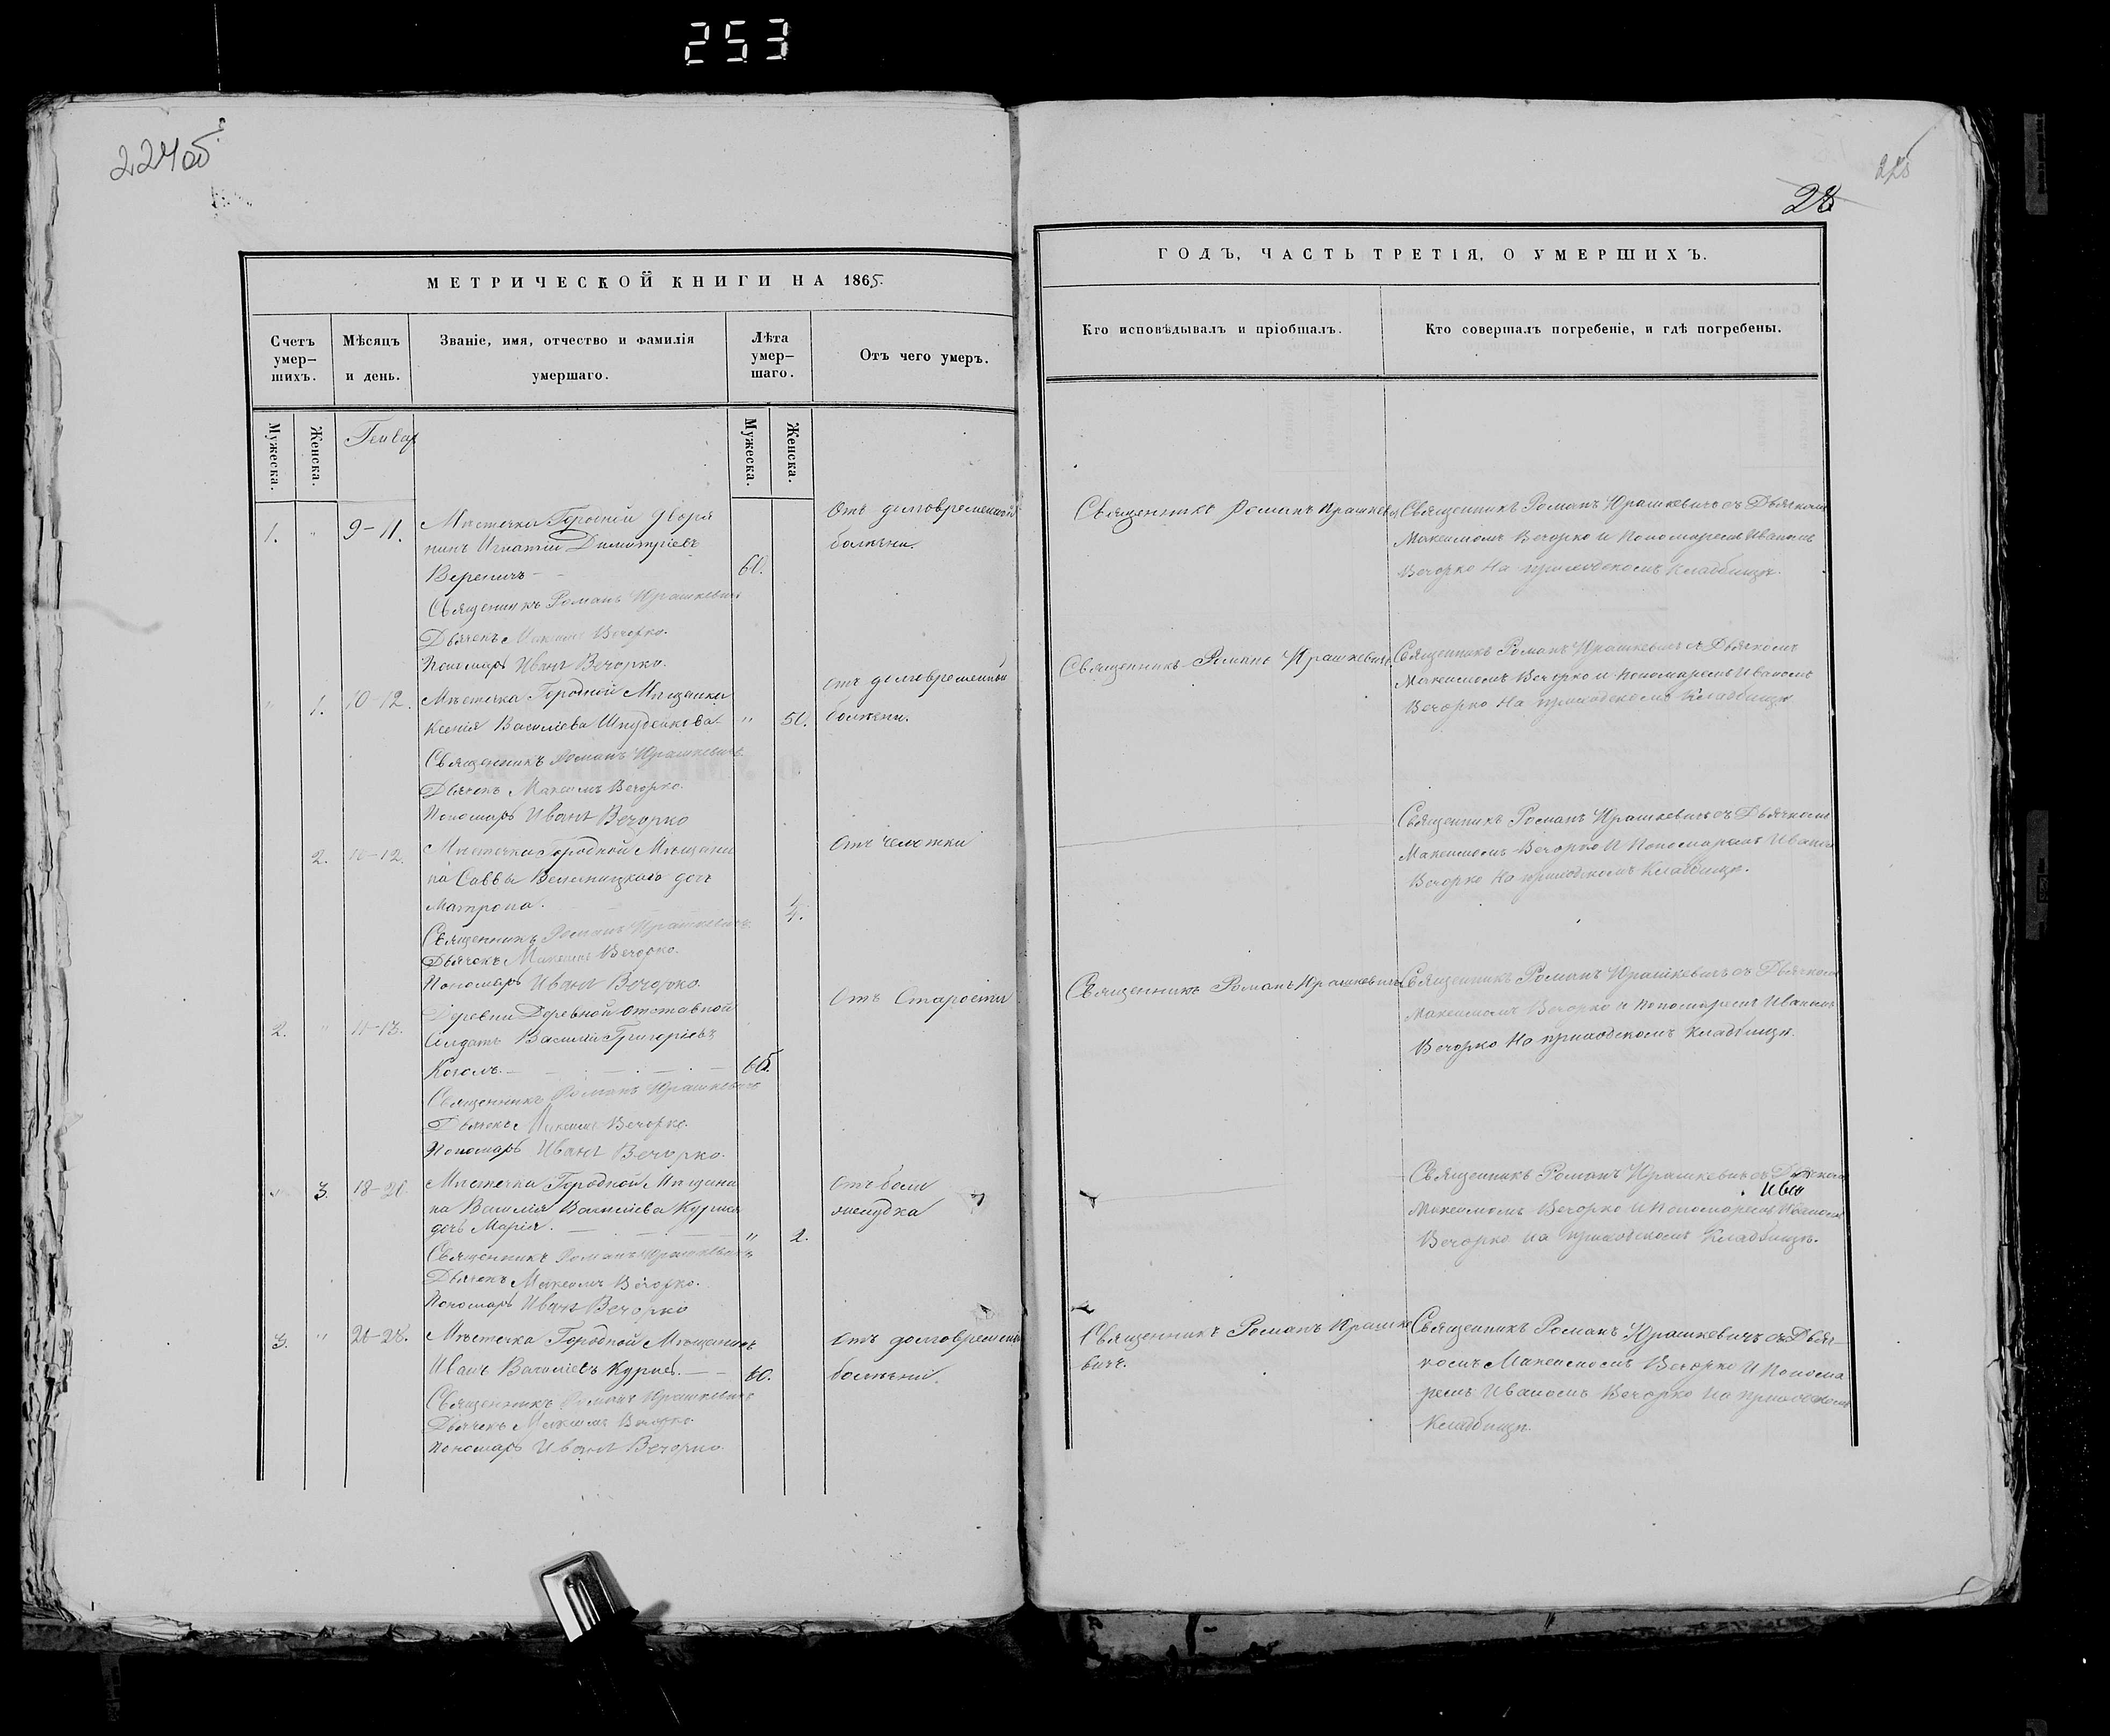 253
224об
225
28
МЕТРИЧЕСКОЙ КНИГИ НА 1865.
Счетъ умер-шихъ.
Мѣсяцъ и день.
Званіе, имя, отчество и фамилія умершаго.
Лѣта умер-шаго.
Отъ чего умеръ.
Мужеска.
Женска.
Генвар
Мужеска.
Женска.
1. " 9-11. Мѣстечка Городной Дворя
нинъ Игнатій Димитріевъ
Вереничъ - 60.
Отъ долговременной
болѣзни.
Священникъ Романъ Юрашкевичъ
Дьячекъ Максимъ Вечорко.
Пономарь Иванъ Вечорко.
" 1. 10-12. Мѣстечка Городной Мѣщанка
Ксенія Василіева " 50.
отъ долговременной
болѣзни.
Священникъ Романъ Юрашкевичъ
Дьячекъ Максимъ Вечорко.
Пономарь Иванъ Вечорко
2. 10-12. Мѣстечка Городной Мѣщани
на Саввы Велесницкаго дочь
Матрона. 4.
Отъ чесотки
Священникъ Романъ Юрашкевичъ
Дьячекъ Максимъ Вечорко.
Пономарь Иванъ Вечорко.
2. " 11-13. Деревни Деревной отставной
Солдатъ Василій Григоріевъ
Когомъ. 65.
Отъ Старости
Священникъ Романъ Юрашкевичъ
Дьячекъ Максимъ Вечорко.
Пономарь Иванъ Вечорко.
3. 18-20. Мѣстечка Городной Мѣщани
на Василія Василіева Курша
дочь Марія. " 2.
отъ боли
желудка
Священникъ Романъ Юрашкевичъ
Дьячекъ Максимъ Вечорко.
Пономарь Иванъ Вечорко
3. " 26-28. Мѣстечка Городной Мѣщанинъ
Иванъ Василіевъ 60.
отъ долговремен
болѣзни.
Священникъ Романъ Юрашкевичъ
Дьячекъ Максимъ Вечорко.
Пономарь Иванъ Вечорко.
ГОДЪ, ЧАСТЬ ТРЕТІЯ, О УМЕРШИХЪ.
Кто исповѣдывалъ и пріобщалъ.
Кто совершалъ погребеніе, и гдѣ погребены.
Священникъ Романъ Юрашкевич
Священникъ Романъ Юрашкевичъ съ Дьячкомъ
Максимомъ Вечорко и Пономаремъ Иваномъ
Вечорко На приходскомъ Кладбищѣ.
Священникъ Романъ Юрашкевичъ
Священникъ Романъ Юрашкевичъ съ Дьячкомъ
Максимомъ Вечорко и Пономаремъ Иваномъ
Вечорко На приходскомъ Кладбищѣ
Священникъ Романъ Юрашкевичъ съ Дьячкомъ
Максимомъ Вечорко и Пономаремъ Иваномъ
Вечорко На приходскомъ Кладбищѣ.
Священникъ Романъ Юрашкевичъ
Священникъ Романъ Юрашкевичъ съ Дьячкомъ
Максимомъ Вечорко и Пономаремъ Иваномъ
Вечорко На приходскомъ Кладбищѣ.
Священникъ Романъ Юрашкевичъ съ Дьячкомъ
Ива
Максимомъ Вечорко и Пономаремъ Иваномъ
Вечорко на приходскомъ Кладбищѣ.
Священникъ Романъ Юрашке
вичъ.
Священникъ Романъ Юрашкевичъ съ Дьяч-
комъ Максимомъ Вечорко и Понома
ремъ Иваномъ Вечорко На приходскомъ
Кладбищѣ.